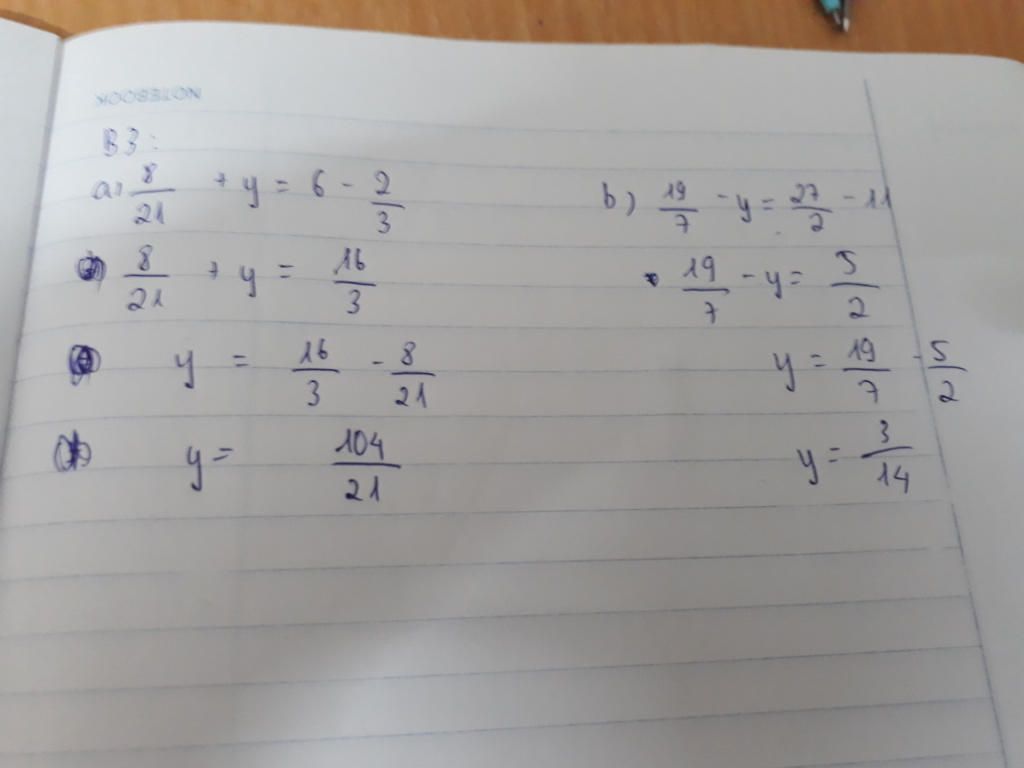 NOTEBOOK
B3:
a, 8/21 + y = 6 - 2/3
8/21 + y = 16/3
y = 16/3 - 8/21
y = 104/21
b) 19/7 - y = 27/2 - 11
19/7 - y = 5/2
y = 19/7 - 5/2
y = 3/14